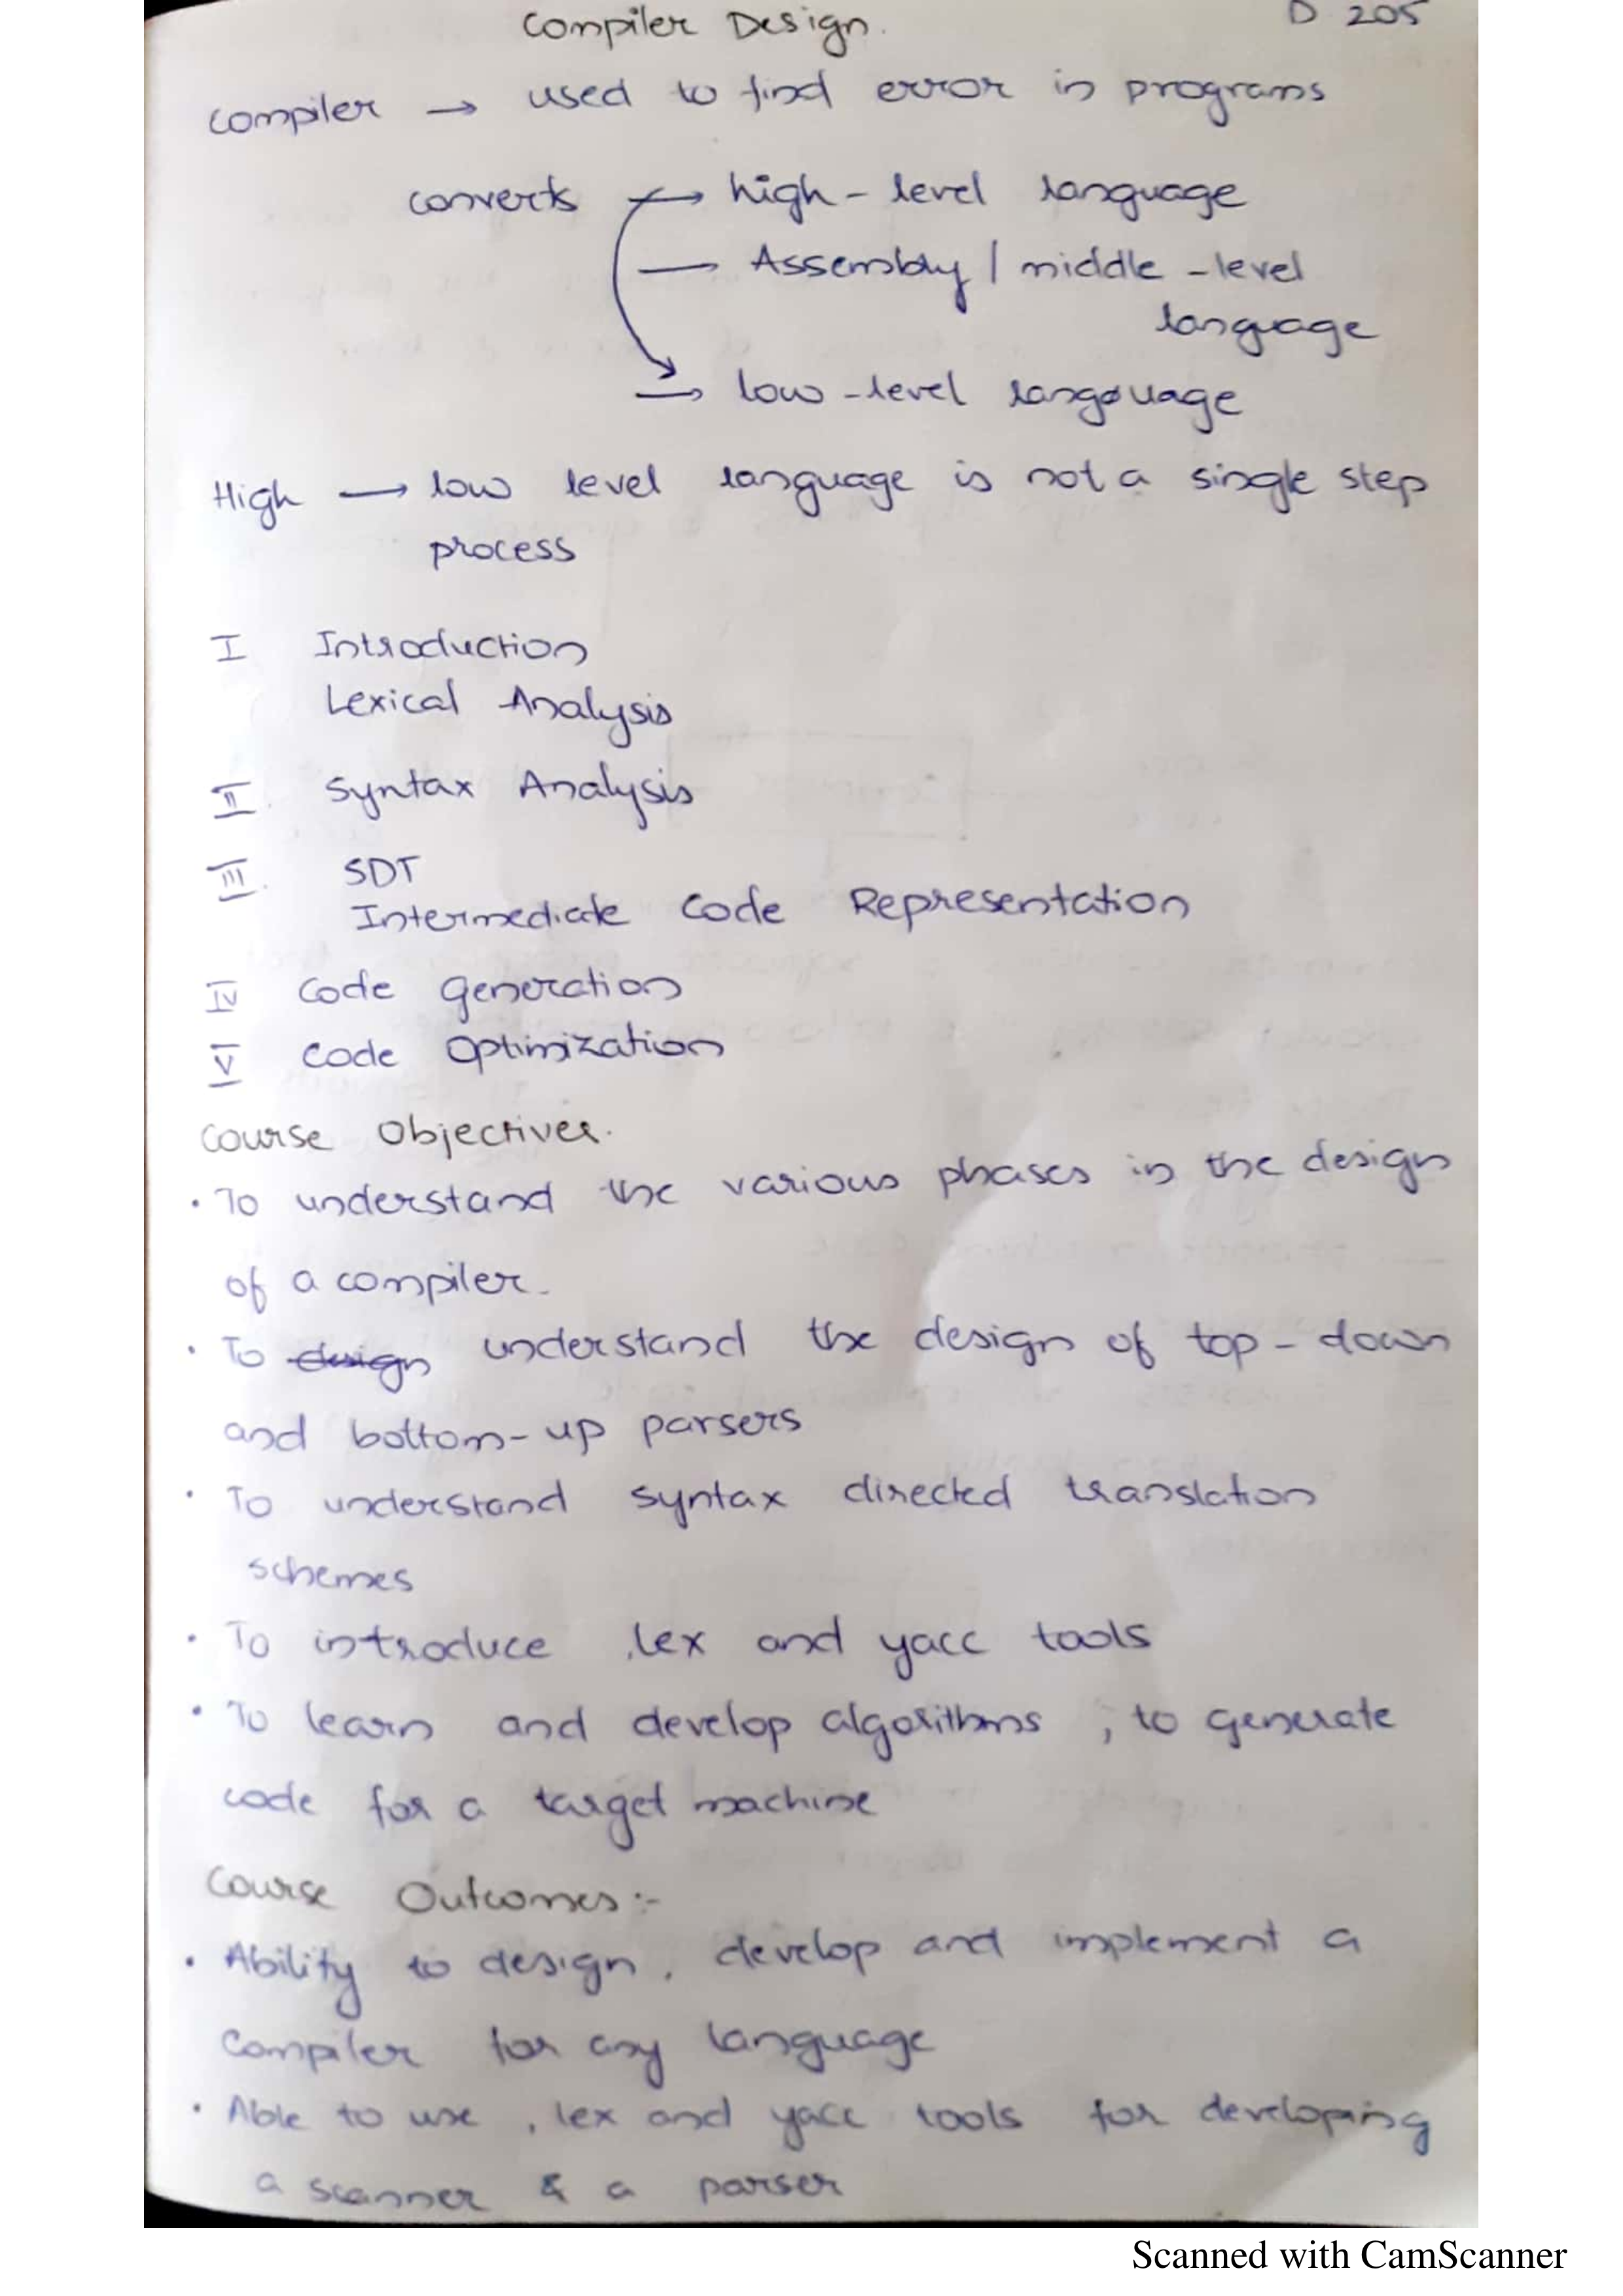 Compiler Design.
D 205
compiler → used to find error in programs
converts → high-level language
— Assembly / middle-level
language
→ low-level langouage
High → low level language is not a single step
process
I Introduction
Lexical Analysis
II. Syntax Analysis
III. SDT
Intermediate Code Representation
IV Code Generation
V Code Optimization
Course Objectives.
• To understand the various phases in the design
of a compiler.
• To design understand the design of top-down
and bottom-up parsers
• To understand syntax directed translation
schemes
• To introduce ,lex and yacc tools
• To learn and develop algorithms , to generate
code for a target machine
Course Outcomes:-
• Ability to design, develop and implement a
Compiler for any language
• Able to use , lex and yacc tools for developing
a scanner & a parser
Scanned with CamScanner